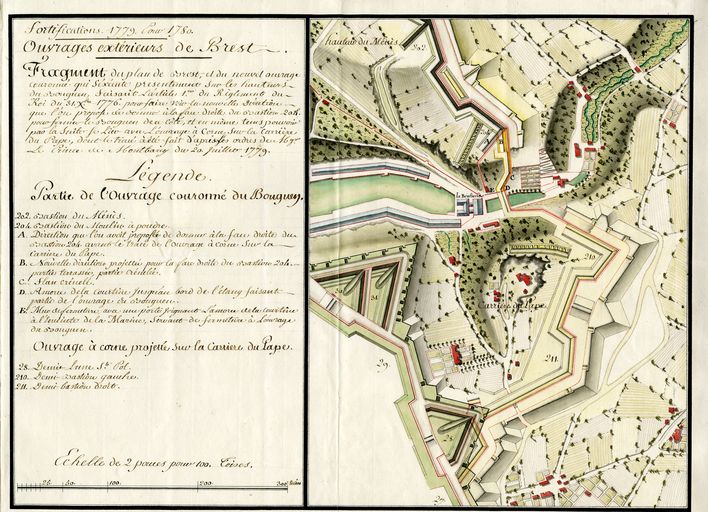 Fortifications. 1779. Pour 1780.
Ouvrages extérieurs de Brest.
Fragment du plan de Brest, et du nouvel ouvrage
couronné qui s'exécute présentement sur les hauteurs
du Bouguen, suivant l'article 1er du Réglement du
Roi du 31 Xbre 1776. pour faire voir la nouvelle direction
que l'on propose de donner à la face droite du Bastion 204.
pour fermer le Bouguen de ce côté, et en même tems pouvoir
par la suite le lier avec l'ouvrage à Corne sur la Carriere
du Pape, dont le tracé a été fait d'après les ordres de Mgr
Le Prince de Montbarey du 20 Juillet 1779.
Légende.
Partie de l'Ouvrage couronné du Bouguen.
202. Bastion du Ménès.
204. Bastion du Moulin à poudre.
A. Direction que l'on avoit proposée de donner à la face droite du
Bastion 204 avant le tracé de l'ouvrage à corne sur la
Carriere du Pape.
B. Nouvelle direction projettée pour la face droite du Bastion 204.
partie terrassée, partie crénelée.
C. Flanc crénelé.
D. Amorce de la courtine jusqu'au bord de l'étang faisant
partie de l'ouvrage du Bouguen.
E. Mur de fermeture avec une porte joignant l'amorce de la courtine
à l'enceinte de la Marine, servant de fermeture à l'ouvrage
du Bouguen.
Ouvrage à corne projetté sur la Carriere du Pape.
28. Demie Lune St. Pol.
210. Demi-Bastion gauche.
211. Demi-bastion droit.
Echelle de 2 pouces pour 100. Toises.
25. 50. 100. 200 300 Toises
hauteur du Ménès
202.
204
A
B
C
E D
210.
Carriere du Pape
211.
29.